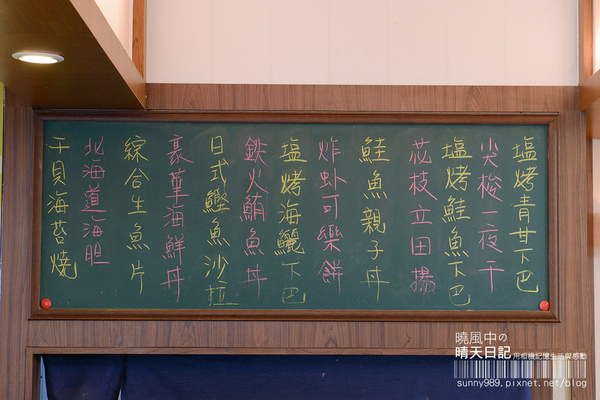 塩烤青甘下巴
尖梭一夜干
塩烤鮭魚下巴
花枝立田揚
鮭魚親子丹
炸虾可樂餅
塩烤海鱺下巴
鉄火鮪魚丼
日式鰹魚沙拉
豪華海鮮丼
綜合生魚片
北海道海胆
干貝海苔燒
曉風中の
晴天日記 用相機記憶生活與感動
sunny989.pixnet.net/blog